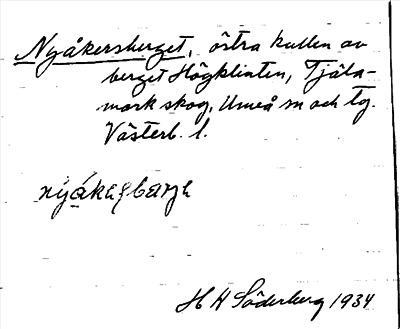 Nyåkersberget, östra kullen av
berget Högklinten, Tjäla-
mark skog, Umeå sn och tg.
Västerb. l.
H A Söderberg 1934